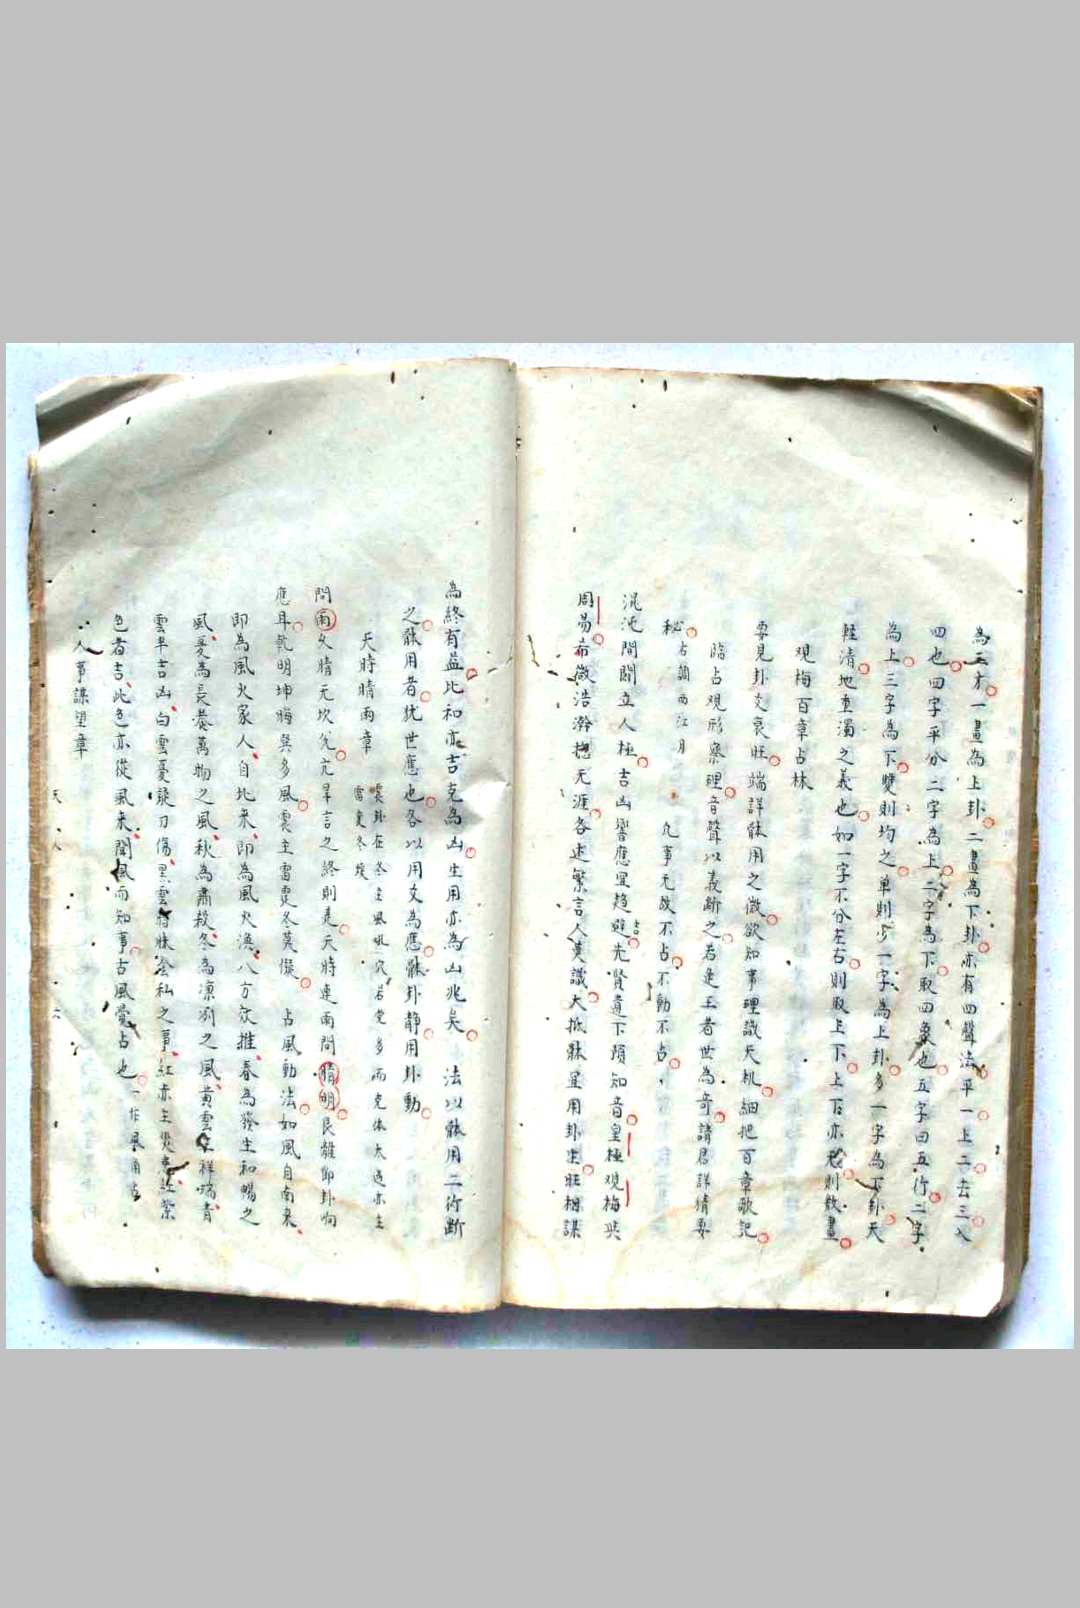 為三才一畫為上卦二畫為下卦亦有四聲法平一上二去三入
四也四字平分二字為上二字為下取四象也五字曰五行二字
為上三字為下雙則均之單則少一字為上卦多一字為下卦天
輕清地重濁之義也如一字不分左右則取上下上下亦老則數畫
觀梅百章占林
要見卦爻衰旺端詳體用之微欲知事理識天机細把百章歌記
臨占观形察理音聲以義斷之若逢王者世為奇請君詳猜要
秘占調西江月
凢事无故不占不動不占
混沌間闢立人極吉凶響應星趋避先賢遺下預知音皇極观梅共
周易希微浩瀚揔无涯各述繁言人莫識大抵體星用卦生旺相謀
為終有益比和亦吉克為凶生用亦為凶兆矣法以體用二行断
之體用者犹世應也各以用爻為應體卦静用卦動
天時晴雨章
震卦在冬主風吼穴若定多而克体太過亦主
雷变冬技
問雨久晴无坎兊亢旱言之終則是天時連雨問晴明艮離卽卦响
應耳乾明坤晦巽多風震主雷霆冬莫儗占風動法如風自南来
即為風火家人自北来即為風火渙八方欻推春為發生和暢之
風夏為長養萬物之風秋為肅殺冬為凛冽之風黄雲主祥端青
雲半吉凶白雲憂談刀傷黑雲将昧金私之事紅亦主災患红紫
色者吉此色亦從風来聞風而知事古風覺占也
人事謀望章
天人
六